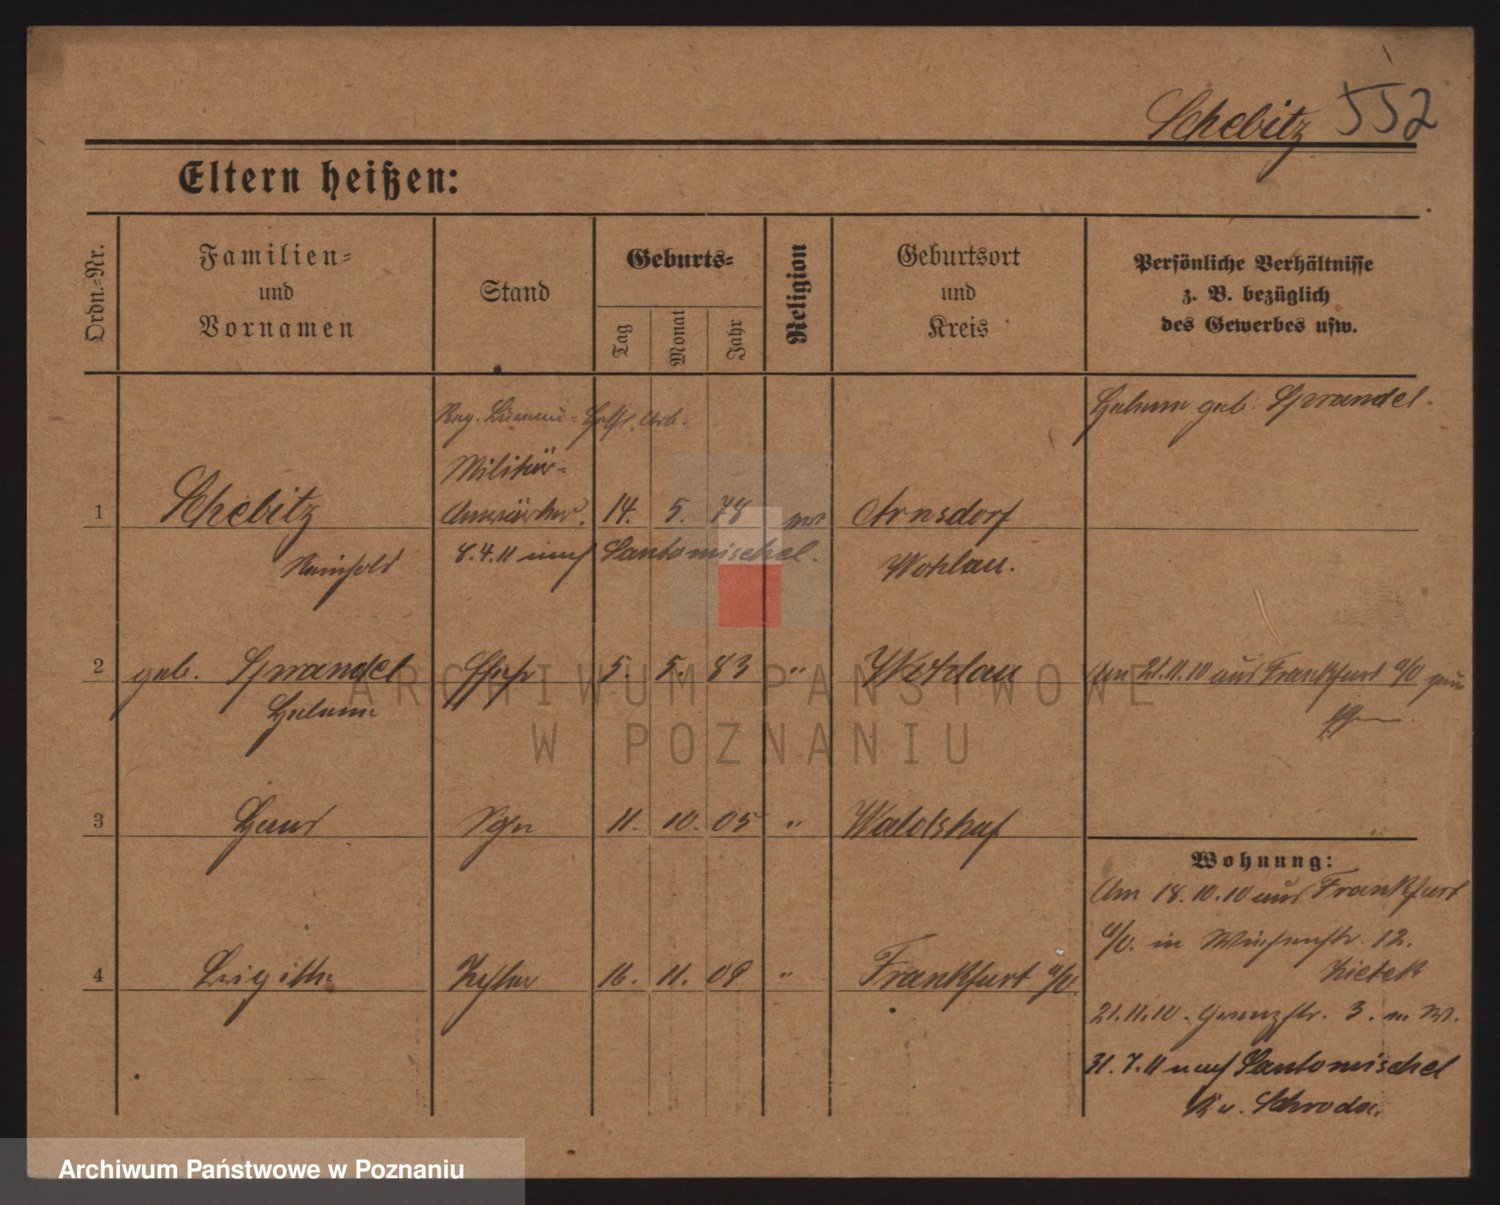 Schebitz 552
Eltern heißen:
Ordn.-Nr.
Familien-
und
Vornamen
Stand
Geburts-
Tag
Monat
Jahr
Religion
Geburtsort
und
Kreis
Persönliche Verhältnisse
z. B. bezüglich
des Gewerbes usw.
Helene geb. Sprandel.
Militär-
1 Schebitz Anwärter. 14. 5. 78 Arnsdorf
Reinhold 8.4.11 nach Santomischel. Wohlau.
2 geb. Sprandel Ehefr 5. 5. 83 " Wohlau Am 21.11.10 aus Frankfurt a/O
Helene
3 Hans Sohn 11. 10. 05 " Waldshaf
4 Brigitte Tochter 16. 11. 09 " Frankfurt a/O
Wohnung:
Am 18.10.10 aus Frankfurt
a/O. in 12.
21.11.10. Grenzstr. 3.
31.7.11 nach Santomischel
Kr. Schroda.
ARCHIWUM PAŃSTWOWE
W POZNANIU
Archiwum Państwowe w Poznaniu